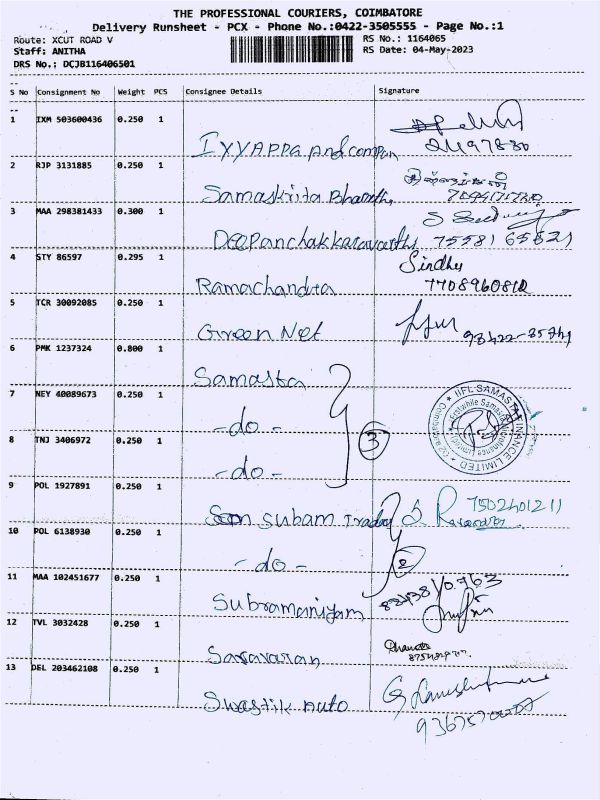 THE PROFESSIONAL COURIERS, COIMBATORE
Delivery Runsheet - PCX - Phone No.:0422-3505555 - Page No.:1
Route: XCUT ROAD V RS No.: 1164065
Staff: ANITHA RS Date: 04-May-2023
DRS No.: DCJB116406501
S No Consignment No Weight PCS Consignee Details Signature
1 IXM 503600436 0.250 1
Iyyappa and compan
2 RJP 3131885 0.250 1
Samaskrita Bharathi
3 MAA 298381433 0.300 1
Deepanchakkaravarthi 75581 65621
4 STY 86597 0.295 1 Sindhu
Ramachandra 7708960812
5 TCR 30092085 0.250 1
Green Net 93422-35741
6 PMK 1237324 0.800 1
Samasta
7 NEY 40089673 0.250 1
-do- 3
8 TNJ 3406972 0.250 1
-do-
IIFL SAMASTA FINANCE LIMITED
9 POL 1927891 0.250 1
Sri Subam Traders 7502401211
10 POL 6138930 0.250 1
-do- 2
11 MAA 102451677 0.250 1
Subramaniyam
12 TVL 3032428 0.250 1
Saravanan
13 DEL 203462108 0.250 1
Swastik Auto